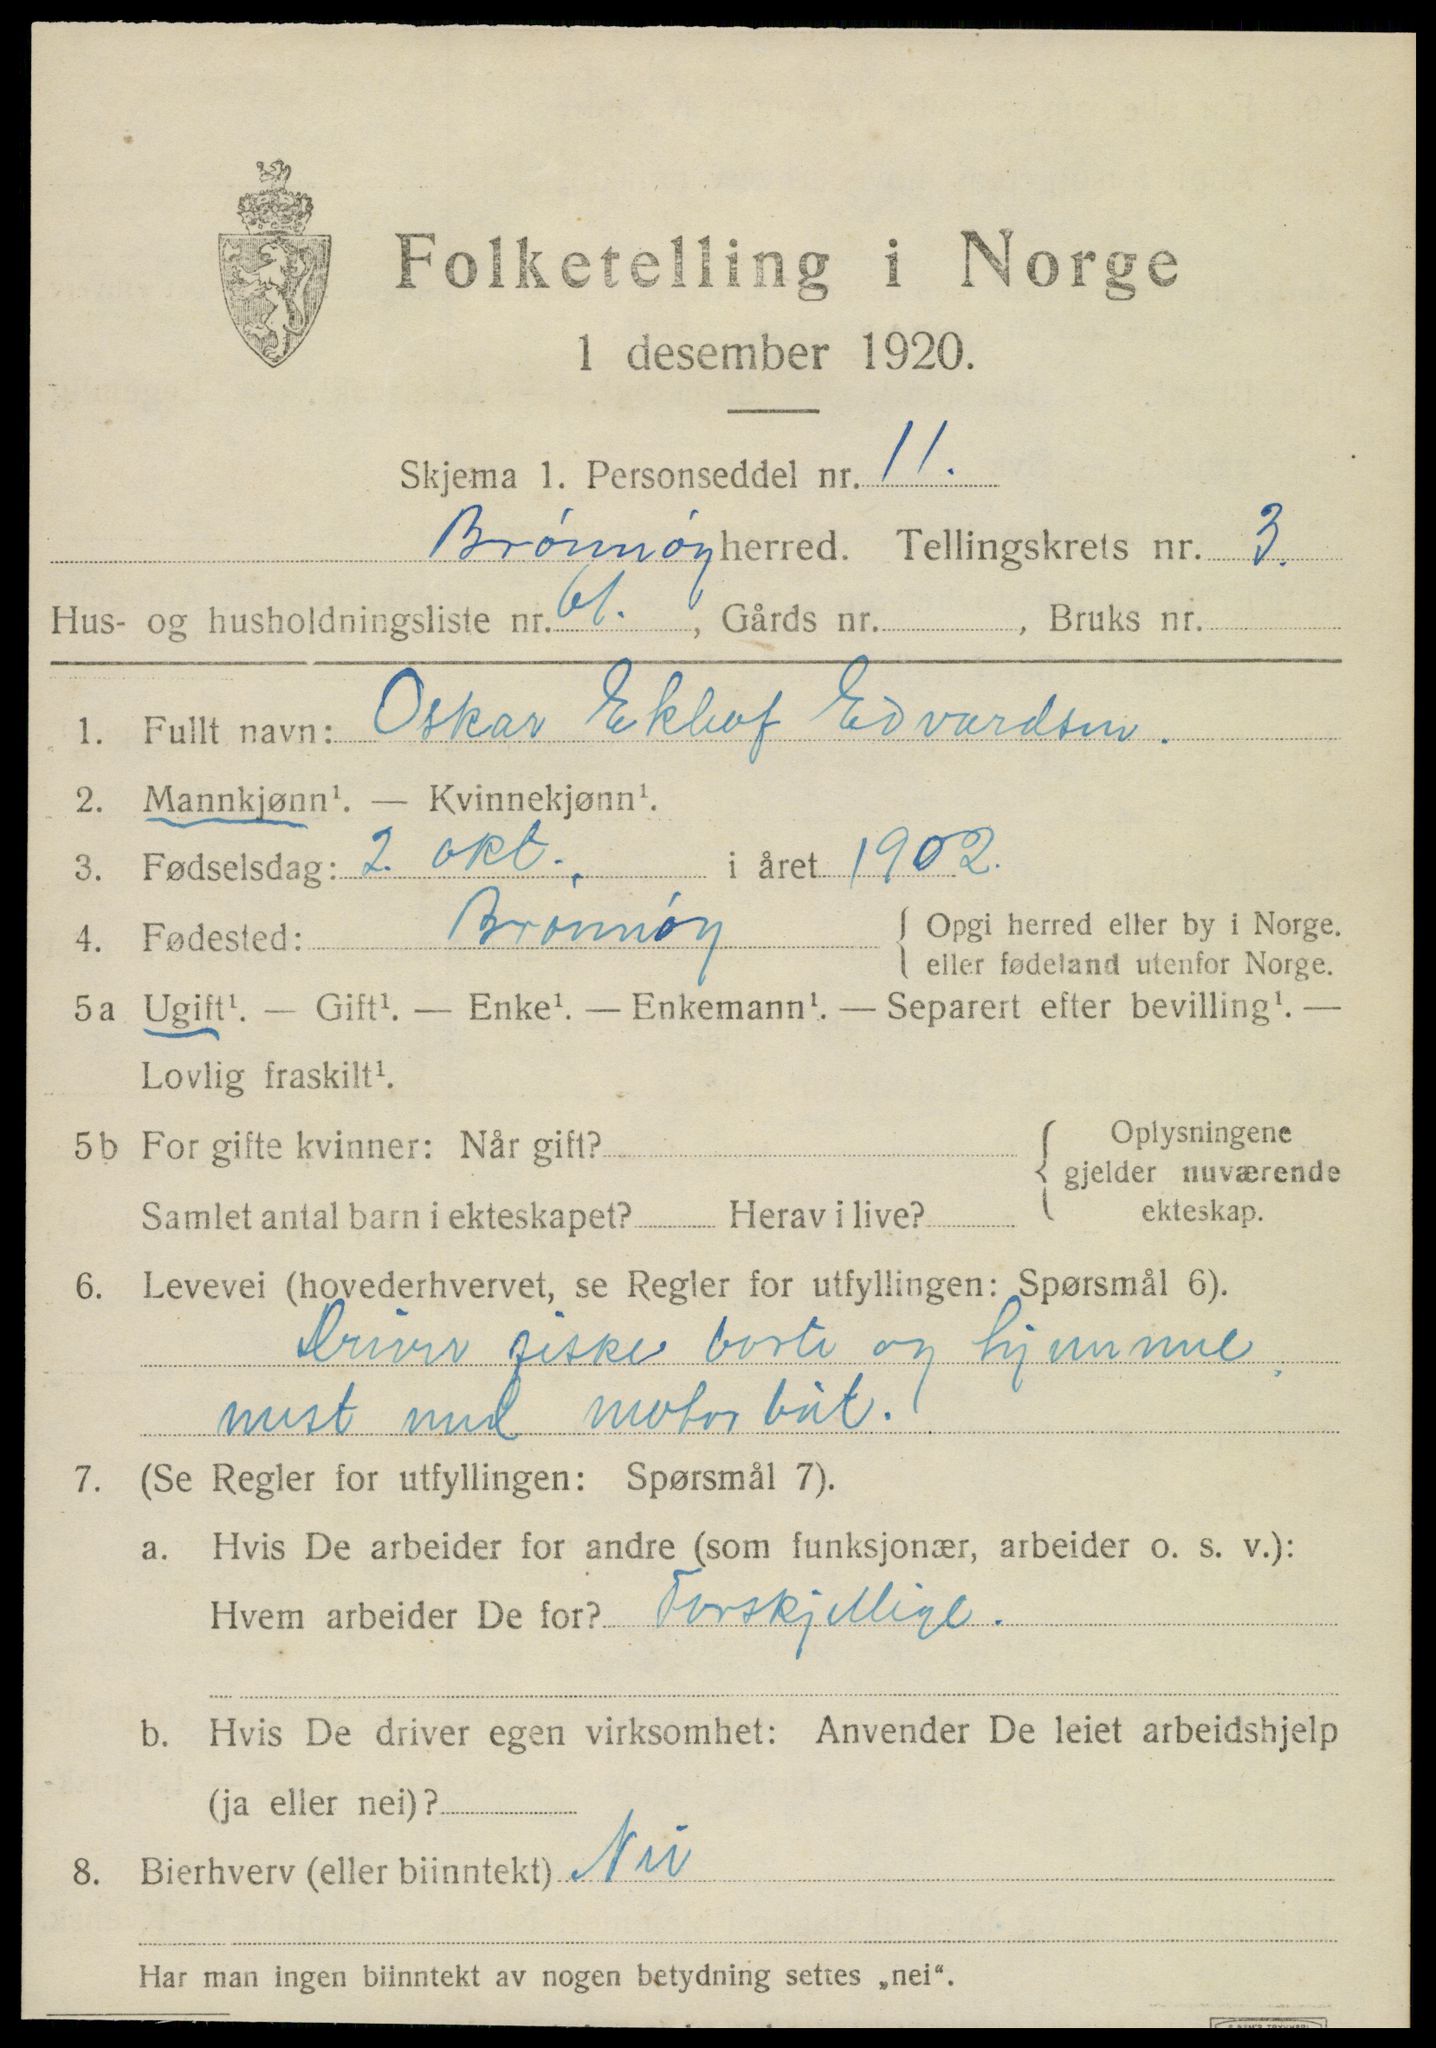 Folketelling i Norge
1 desember 1920.
Skjema 1. Personseddel nr. 11.
Brönnöy herred. Tellingskrets nr. 3.
Hus- og husholdningsliste nr. 61. , Gårds nr. , Bruks nr.
1. Fullt navn: Oskar Eklof Edvardsen.
2. Mannkjønn¹. — Kvinnekjønn¹.
3. Fødselsdag: 2. okt. i året 1902.
4. Fødested: Brönnöy { Opgi herred eller by i Norge.
eller fødeland utenfor Norge.
5a Ugift¹. — Gift¹. — Enke¹. — Enkemann¹. — Separert efter bevilling¹. —
Lovlig fraskilt¹.
5b For gifte kvinner: Når gift? { Oplysningene
gjelder nuværende
Samlet antal barn i ekteskapet? Herav i live? ekteskap.
6. Levevei (hovederhvervet, se Regler for utfyllingen: Spørsmål 6).
Driver fiske borte og hjemme
mest med motorbåt.
7. (Se Regler for utfyllingen: Spørsmål 7).
a. Hvis De arbeider for andre (som funksjonær, arbeider o. s. v.):
Hvem arbeider De for? Forskjellige.
b. Hvis De driver egen virksomhet: Anvender De leiet arbeidshjelp
(ja eller nei)?
8. Bierhverv (eller biinntekt) Nei
Har man ingen biinntekt av nogen betydning settes „nei“.